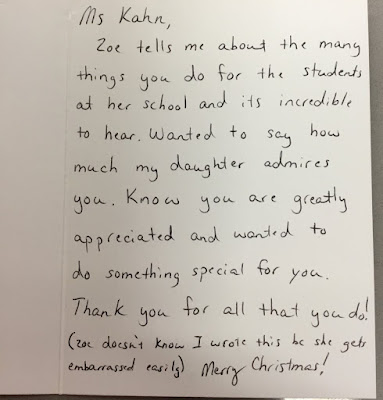 Ms Kahn,
Zoe tells me about the many
things you do for the students
at her school and its incredible
to hear. Wanted to say how
much my daughter admires
you. Know you are greatly
appreciated and wanted to
do something special for you.
Thank you for all that you do!
(Zoe doesn't know I wrote this bc she gets
embarrassed easily) Merry Christmas!